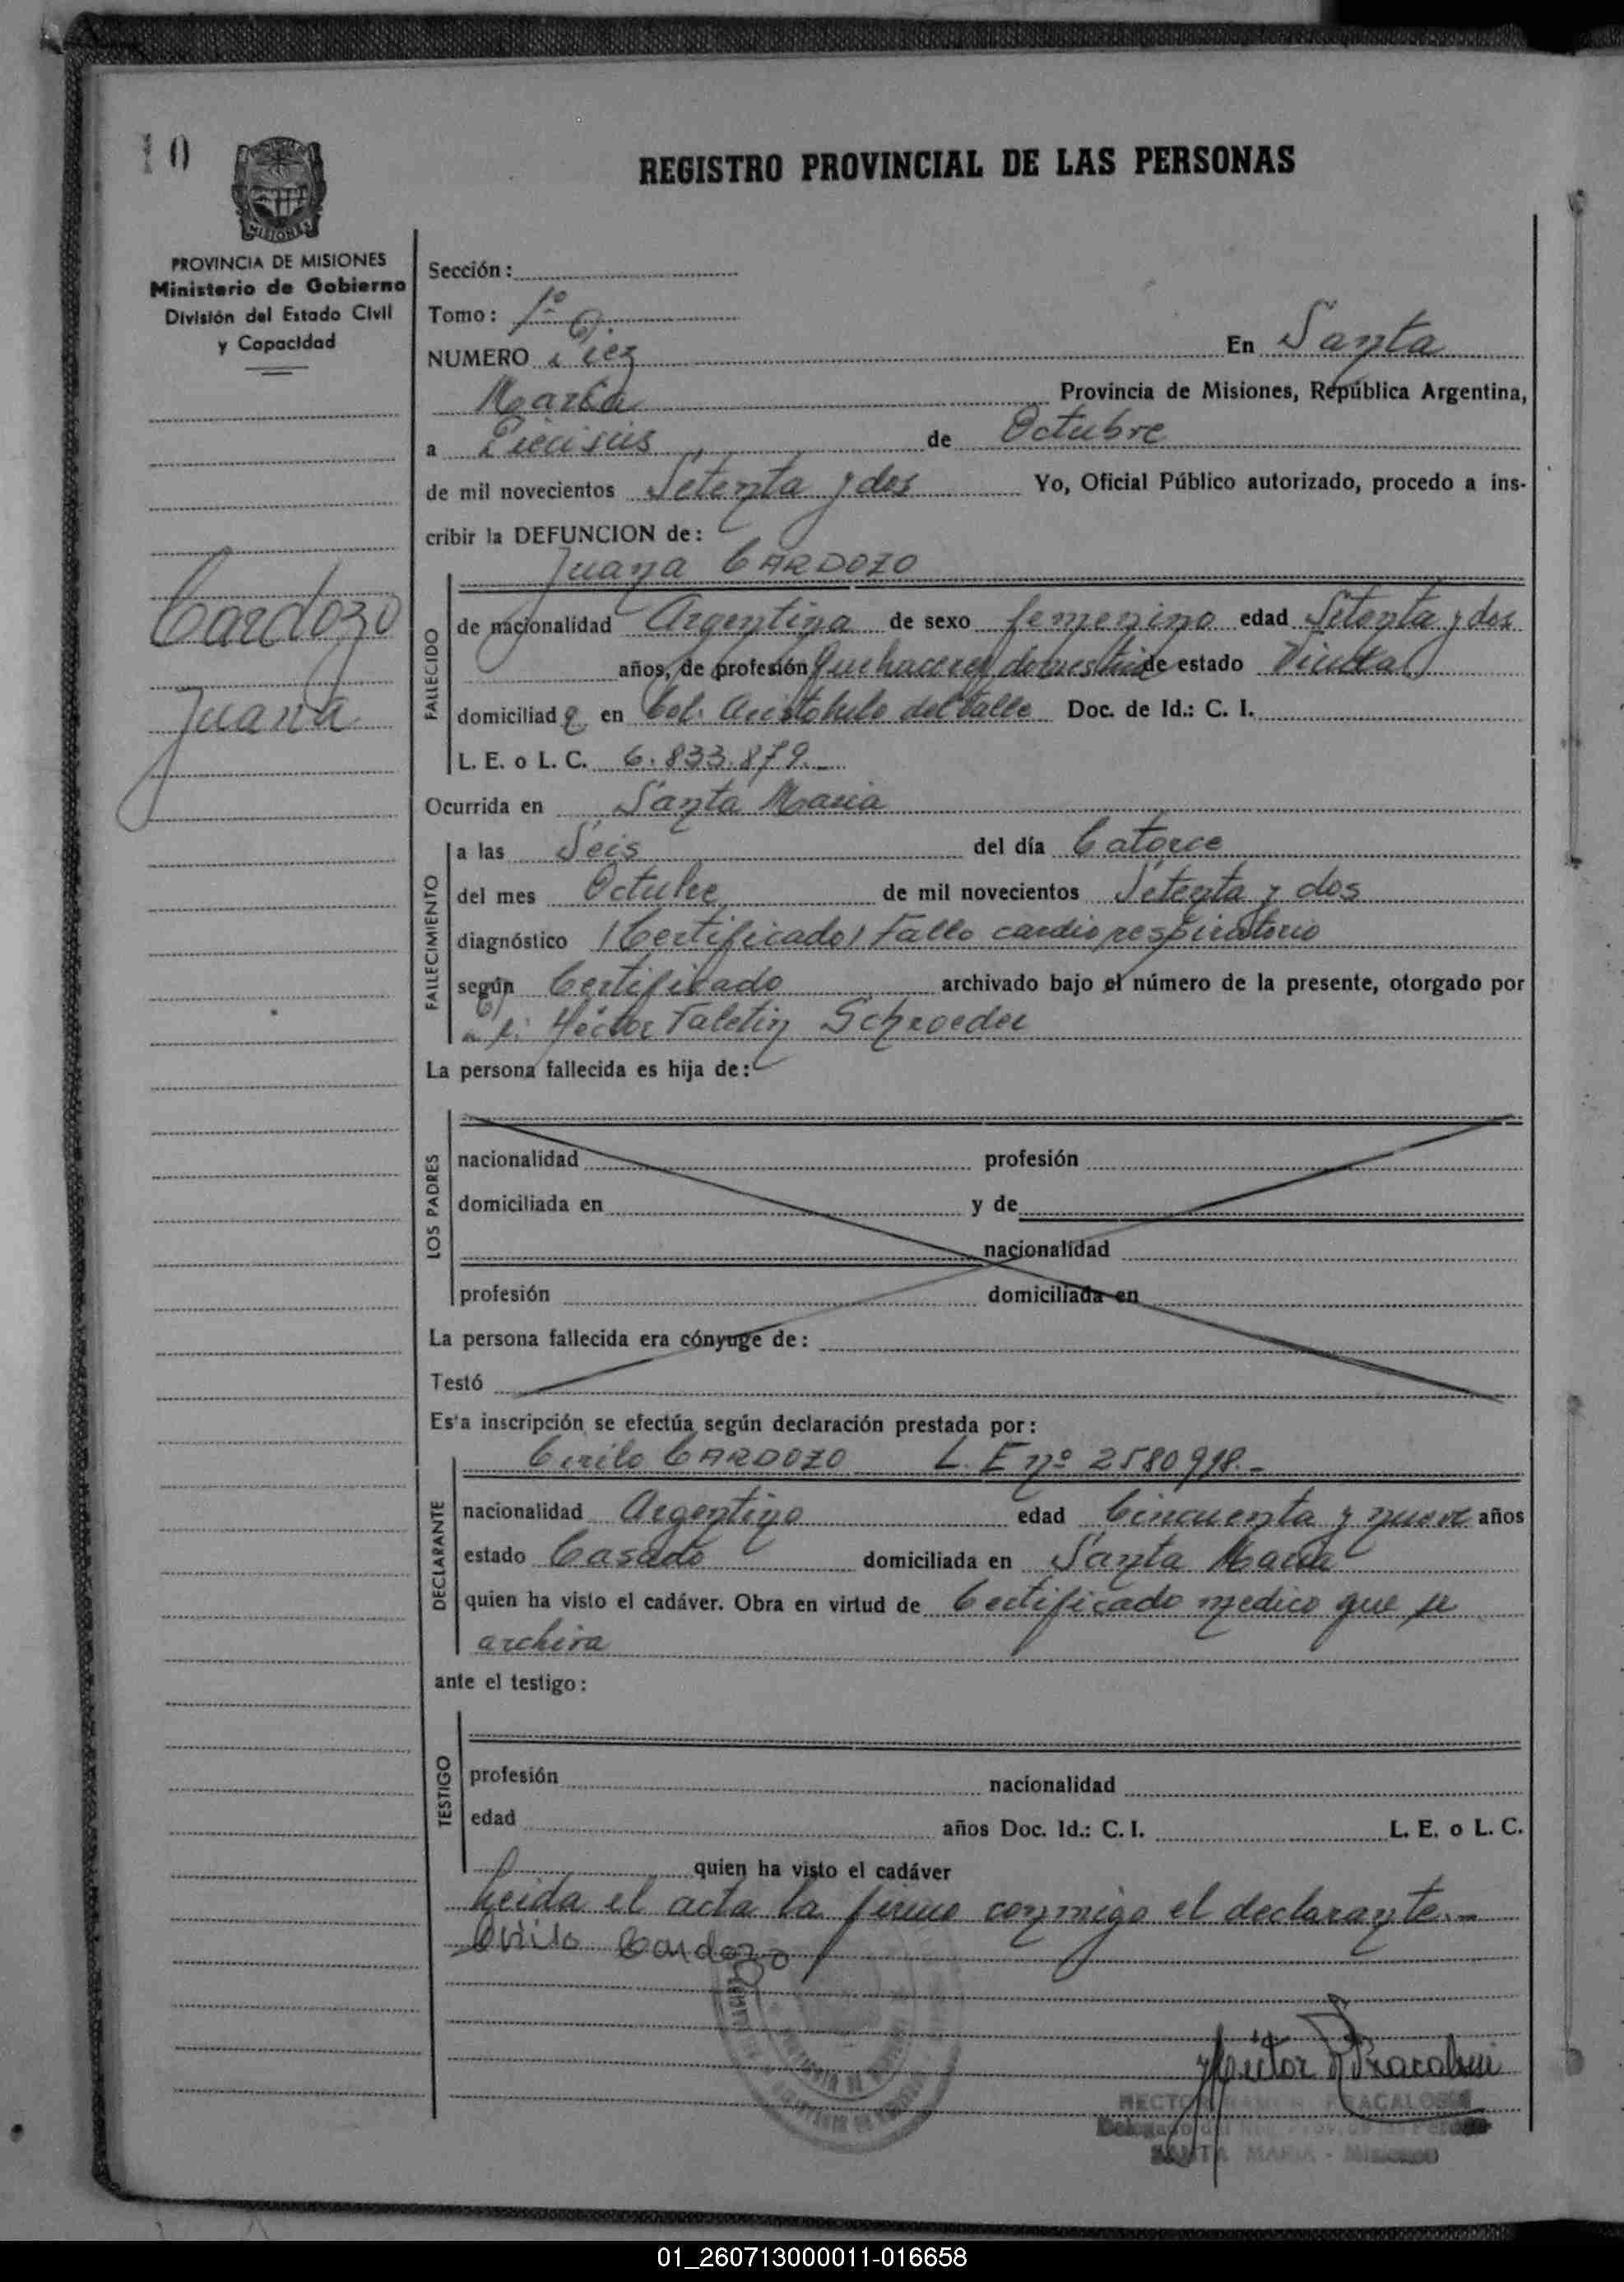 10
MISIONES
PROVINCIA DE MISIONES
Ministerio de Gobierno
División del Estado Civil
y Capacidad
Cardozo
Juana
REGISTRO PROVINCIAL DE LAS PERSONAS
Sección:
Tomo: 1º
NUMERO Diez En Santa
María Provincia de Misiones, República Argentina,
a Dieciseis de Octubre
de mil novecientos Setenta y dos Yo, Oficial Público autorizado, procedo a ins-
cribir la DEFUNCION de:
Juana CARDOZO
FALLECIDO
de nacionalidad Argentina de sexo femenino edad Setenta y dos
años, de profesión Quehaceres domestico de estado Viuda
domiciliad a en Col. Aristobulo del Valle Doc. de Id.: C. I.
L. E. o L. C. 6.833.879.
Ocurrida en Santa Maria
FALLECIMIENTO
a las Seis del día Catorce
del mes Octubre de mil novecientos Setenta y dos
diagnóstico (Certificado) Fallo cardio respiratorio
según Certificado archivado bajo el número de la presente, otorgado por
Héctor Valetin Schroeder
La persona fallecida es hija de:
LOS PADRES
nacionalidad profesión
domiciliada en y de
nacionalidad
profesión domiciliada en
La persona fallecida era cónyuge de:
Testó
Es'a inscripción se efectúa según declaración prestada por:
DECLARANTE
Cirilo CARDOZO L. E nº 2580918.-
nacionalidad Argentino edad Cincuenta y nueve años
estado Casado domiciliada en Santa Maria
quien ha visto el cadáver. Obra en virtud de Certificado medico que se
archiva
ante el testigo:
TESTIGO
profesión nacionalidad
edad años Doc. Id.: C. I. L. E. o L. C.
quien ha visto el cadáver
Leida el acta la firma conmigo el declarante.-
Cirilo Cardozo
Héctor R Fracalossi
HECTOR RAMON FRACALOSSI
SANTA MARIA - Misiones
01_260713000011-016658